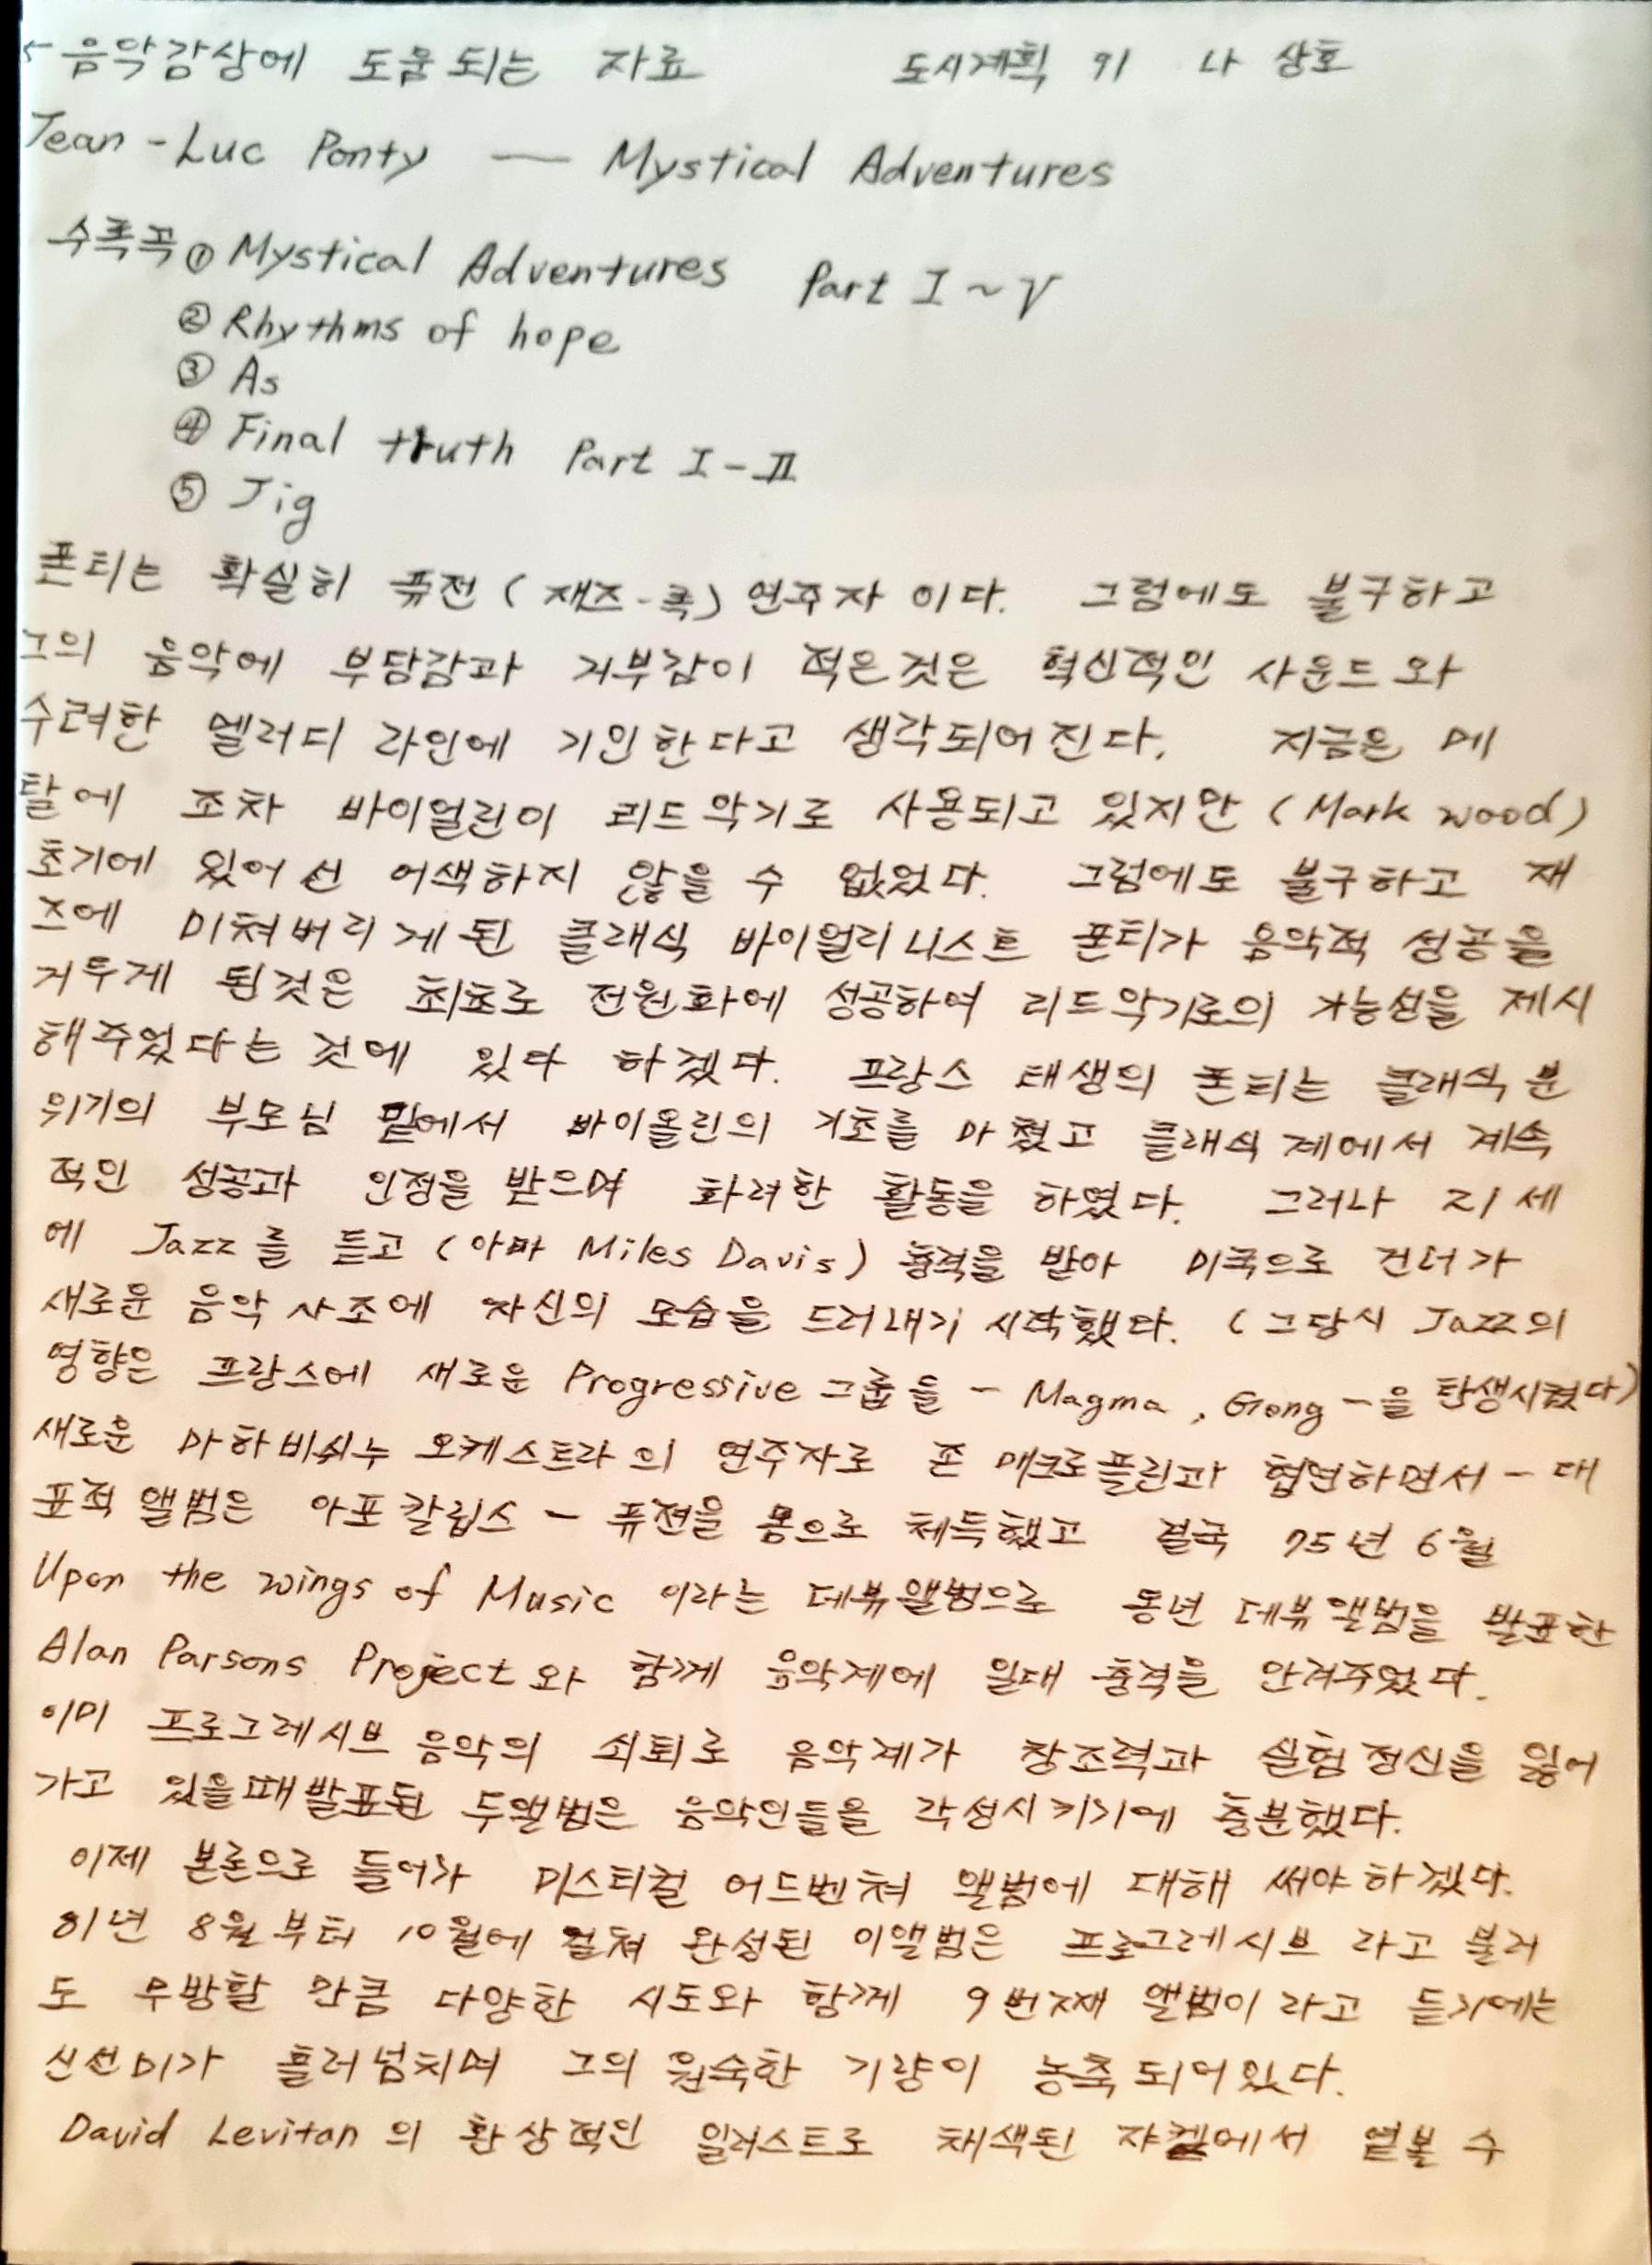 ← 음악감상에 도움되는 자료 도시계획 91 나상호
Jean-Luc Ponty — Mystical Adventures
수록곡 ① Mystical Adventures Part I ~ V
② Rhythms of hope
③ As
④ Final truth Part I - II
⑤ Jig
폰티는 확실히 퓨전 ( 재즈-록 ) 연주자 이다. 그럼에도 불구하고
그의 음악에 부담감과 거부감이 적은것은 혁신적인 사운드와
수려한 멜러디 라인에 기인한다고 생각되어진다. 지금은 메
탈에 조차 바이얼린이 리드악기로 사용되고 있지만 (Mark wood)
초기에 있어선 어색하지 않을 수 없었다. 그럼에도 불구하고 재
즈에 미쳐버리게된 클래식 바이얼리니스트 폰티가 음악적 성공을
거두게 된것은 최초로 전원화에 성공하여 리드악기로의 가능성을 제시
해주었다는 것에 있다 하겠다. 프랑스 태생의 폰티는 클래식 분
위기의 부모님 밑에서 바이올린의 기초를 마쳤고 클래식계에서 계속
적인 성공과 인정을 받으며 화려한 활동을 하였다. 그러나 21세
에 Jazz를 듣고 (아마 Miles Davis) 충격을 받아 미국으로 건너가
새로운 음악사조에 자신의 모습을 드러내기 시작했다. (그당시 Jazz의
영향은 프랑스에 새로운 Progressive 그룹들 - Magma, Gong -을 탄생시켰다)
새로운 마하비쉬누 오케스트라의 연주자로 존 매크로플린과 협연하면서 - 대
표적 앨범은 아포칼립스 - 퓨젼을 몸으로 체득했고 결국 75년 6월
Upon the wings of Music 이라는 데뷰앨범으로 동년 데뷰앨범을 발표한
Alan Parsons Project와 함께 음악계에 일대 충격을 안겨주었다.
이미 프로그레시브 음악의 쇠퇴로 음악계가 창조력과 실험정신을 잃어
가고 있을때 발표된 두앨범은 음악인들을 각성시키기에 충분했다.
이제 본론으로 들어가 미스티컬 어드벤쳐 앨범에 대해 써야하겠다.
81년 8월부터 10월에 걸쳐 완성된 이앨범은 프로그레시브 라고 불러
도 무방할 만큼 다양한 시도와 함께 9번째 앨범이라고 듣기에는
신선미가 흘러넘치며 그의 원숙한 기량이 농축되어있다.
David Levitan의 환상적인 일러스트로 채색된 쟈켓에서 엿볼 수